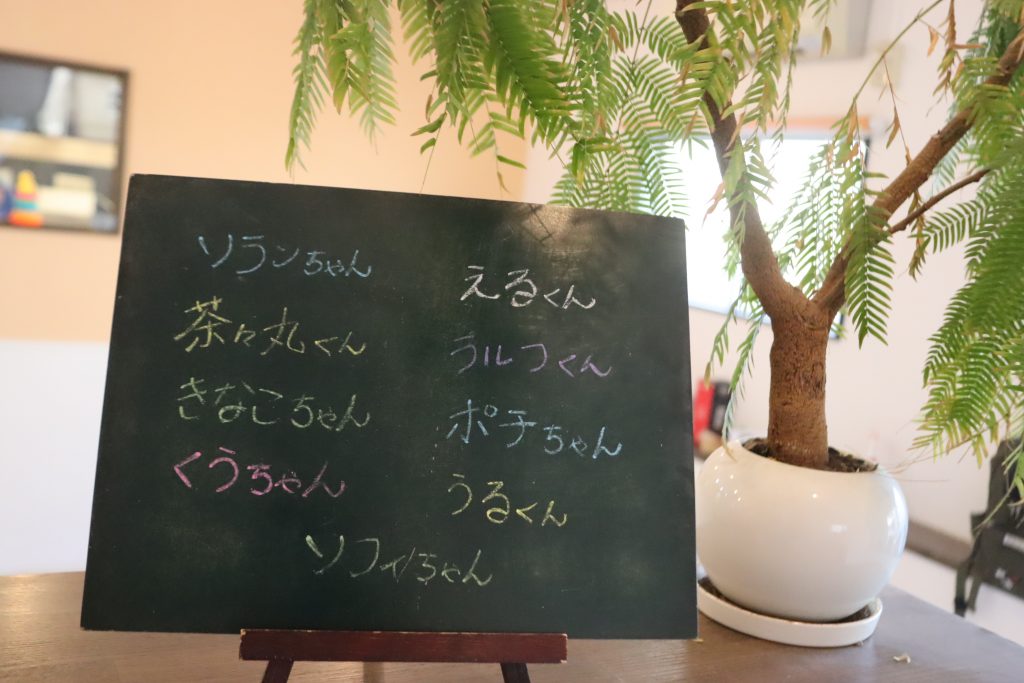 ソランちゃん
茶々丸くん
きなこちゃん
くうちゃん
えるくん
ラルフくん
ポチちゃん
うるくん
ソフィちゃん